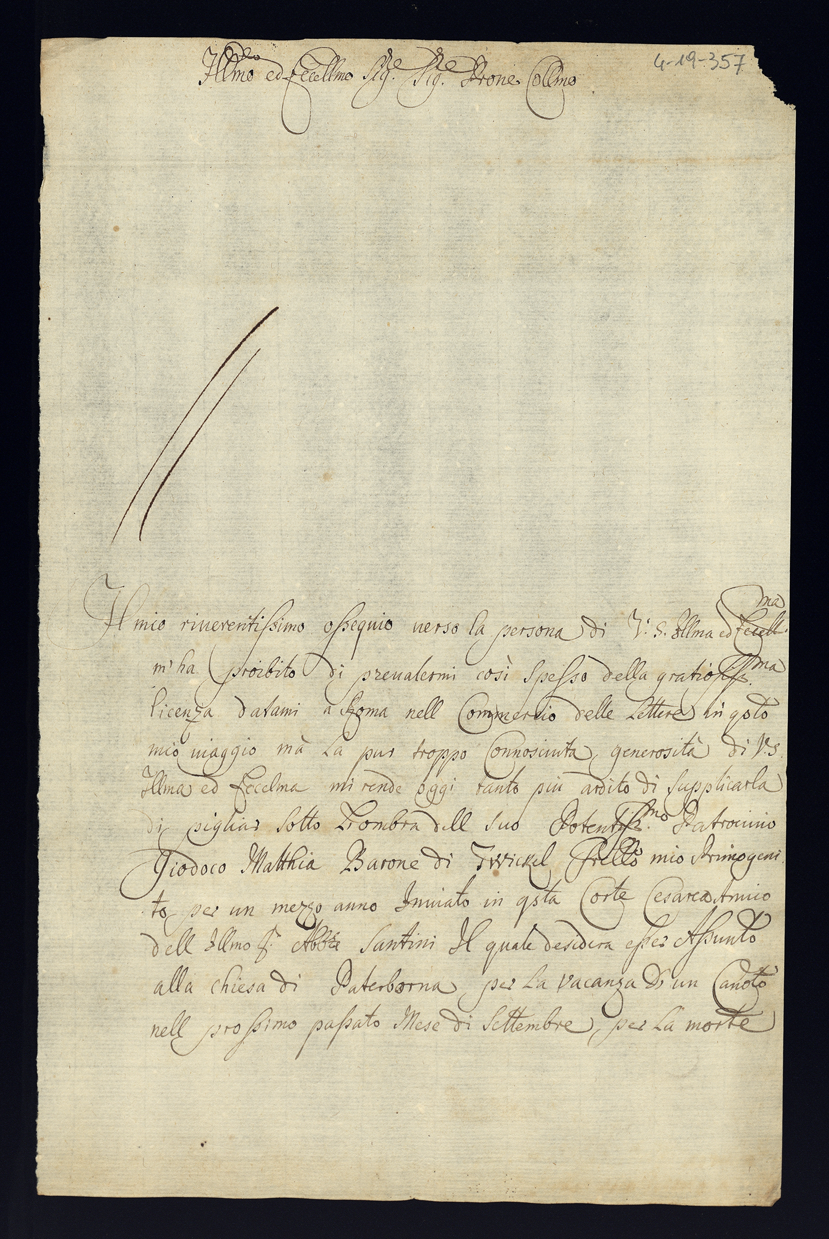 Illmo ed Eccellmo Sig.re Sig.re Prone Collmo
4-19-357
Il mio riuerentissimo ossequio uerso la persona di V: S. Illma ed Eccell.ma
m'ha proibito di preualermi così spesso della gratiosiss.ma
licenza datami a Roma nell Commercio delle Lettere in qsto
mio uiaggio mà La pur troppo Connosciuta generosità di VS
Illma ed Eccelma mi rende oggi tanto più ardito di supplicarla
di pigliar sotto L'ombra dell suo Potentiss.mo Patrocinio
Giodoco Matthia Barone di Twickel Frello mio Primogeni
to, per un mezzo anno Inuiato in qsta Corte Cesarea, Amico
dell Illmo S.r Abbte Santini Il quale desidera esser Assunto
alla chiesa di Paterborna, per La vacanza di un Canoto
nell prossimo passato Mese di Settembre, per La morte